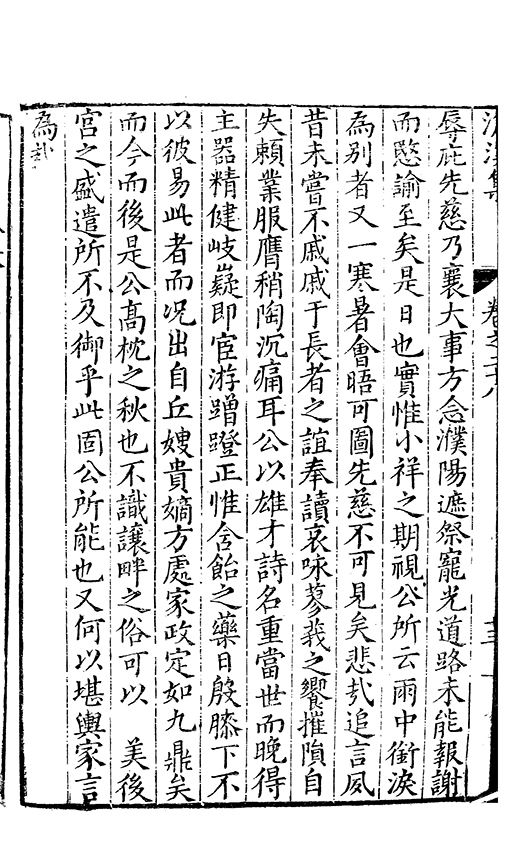 集　卷之二十八
辱庇先慈乃襄大事方念濮陽遮祭寵光道路未能報謝
而愍諭至矣是日也實惟小祥之期視公所云雨中銜淚
為別者又一寒暑會晤可圖先慈不可見矣悲哉追言夙
昔未嘗不戚戚于長者之誼奉讀哀咏蓼莪之饗摧隕自
失賴業服膺稍陶沉痛耳公以雄才詩名重當世而晚得
主器精健岐嶷即宦游蹭蹬正惟含飴之藥日殷膝下不
以彼易此者而况出自丘嫂貴嫡方處家政定如九鼎矣
而今而後是公高枕之秋也不識讓畔之俗可以　美後
宮之盛遣所不及御乎此固公所能也又何以堪輿家言
為哉